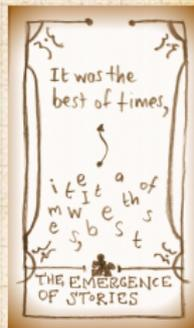 It was the
best of times,
i t e t a of
m w I e th s
e s b s t
THE EMERGENCE
OF STORIES